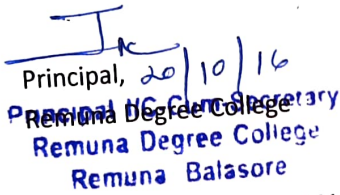 Principal, 20/10/16
Remuna Degree College
Principal Cum-Secretary
Remuna Degree College
Remuna Balasore